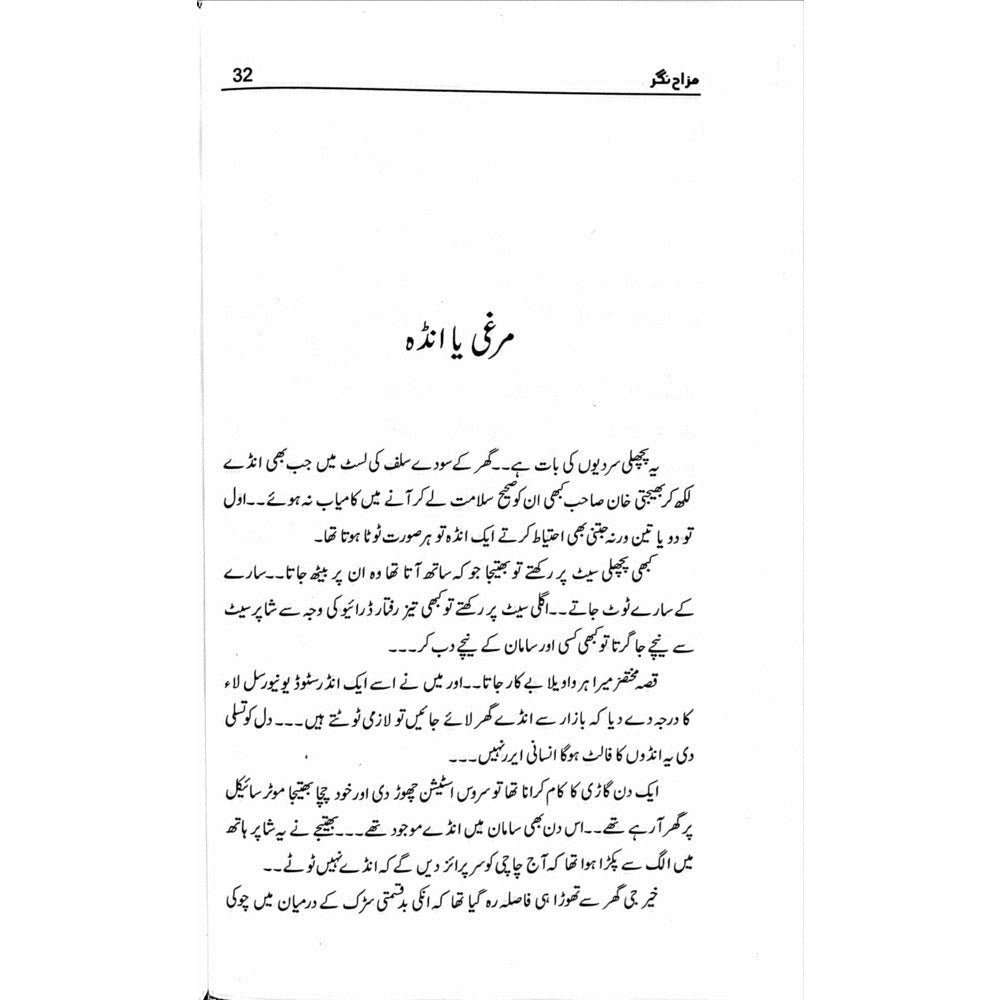 مزاح نگر
32
مرغی یا انڈہ
یہ پچھلی سردیوں کی بات ہے۔۔گھر کے سودے سلف کی لسٹ میں جب بھی انڈے
لکھ کر بھیجتی خان صاحب کبھی ان کو صحیح سلامت لے کر آنے میں کامیاب نہ ہوئے۔۔اول
تو دو یا تین ورنہ جتنی بھی احتیاط کرتے ایک انڈہ تو ہر صورت ٹوٹا ہوتا تھا۔
کبھی پچھلی سیٹ پر رکھتے تو بھتیجا جو کہ ساتھ آتا تھا وہ ان پر بیٹھ جاتا۔۔سارے
کے سارے ٹوٹ جاتے۔۔اگلی سیٹ پر رکھتے تو کبھی تیز رفتار ڈرائیو کی وجہ سے شاپر سیٹ
سے نیچے جا گرتا تو کبھی کسی اور سامان کے نیچے دب کر۔۔۔
قصہ مختصر میرا ہر واویلا بے کار جاتا۔۔اور میں نے اسے ایک انڈرسٹوڈ یونیورسل لاء
کا درجہ دے دیا کہ بازار سے انڈے گھر لائے جائیں تو لازمی ٹوٹتے ہیں۔۔۔دل کو تسلی
دی یہ انڈوں کا فالٹ ہوگا انسانی ایرر نہیں۔۔۔
ایک دن گاڑی کا کام کرانا تھا تو سروس اسٹیشن چھوڑ دی اور خود چچا بھتیجا موٹر سائیکل
پر گھر آ رہے تھے۔۔اس دن بھی سامان میں انڈے موجود تھے۔۔۔بھتیجے نے یہ شاپر ہاتھ
میں الگ سے پکڑا ہوا تھا کہ آج چاچی کو سرپرائز دیں گے کہ انڈے نہیں ٹوٹے۔۔
خیر جی گھر سے تھوڑا ہی فاصلہ رہ گیا تھا کہ انکی بدقسمتی سڑک کے درمیان میں چوکی